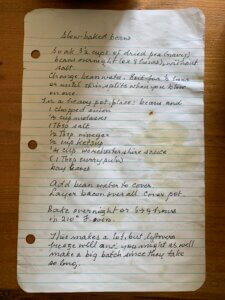 Slow-baked beans
Soak 3½ cups of dried pea (navy)
beans overnight (or 8 hours), without
salt
Change bean water. Boil for ½ hour
or until skin splits when you blow
on one.
In a heavy pot, place: beans and
1 chopped onion
¼ cup molasses
1 Tbsp salt
Tbsp vinegar
cup ketchup
cup worcestershire sauce
(1 Tbsp curry pdr)
Bay leaves
Add bean water to cover.
Layer bacon over all. Cover pot.
Bake overnight or 6-8 hours
in 210° F oven.
This makes a lot, but leftovers
freeze well and you might as well
make a big batch since they take
so long.